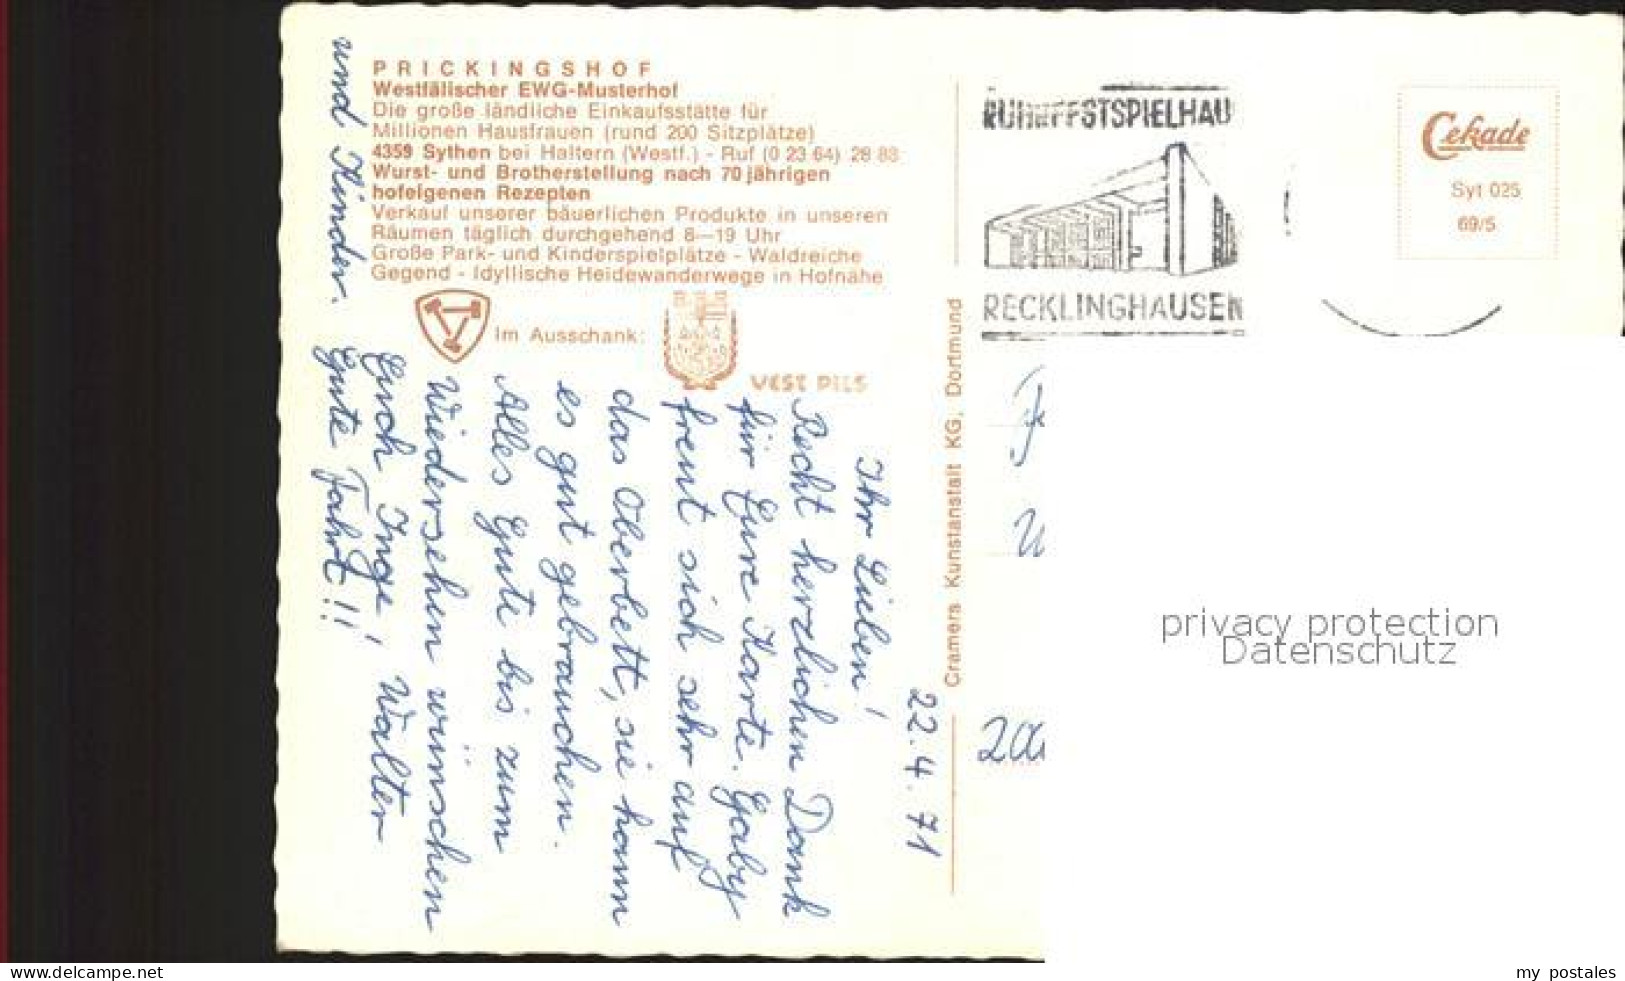 PRICKINGSHOF
Westfälischer EWG-Musterhof
Die große ländliche Einkaufsstätte für
Millionen Hausfrauen (rund 200 Sitzplätze)
4359 Sythen bei Haltern (Westf.) - Ruf (0 23 64) 28 83
Wurst- und Brotherstellung nach 70 jährigen
hofeigenen Rezepten
Verkauf unserer bäuerlichen Produkte in unseren
Räumen täglich durchgehend 8—19 Uhr
Große Park- und Kinderspielplätze - Waldreiche
Gegend - Idyllische Heidewanderwege in Hofnähe
Im Ausschank:
VEST PILS
Cramers Kunstanstalt KG, Dortmund
RUHRFESTSPIELHAU
RECKLINGHAUSEN
Cekade
Syt 025
69/5
22.4.71
Ihr Lieben!
Recht herzlichen Dank
für Eure Karte. Gaby
freut sich sehr auf
das Oberbett, sie kann
es gut gebrauchen.
Alles Gute bis zum
Wiedersehen wünschen
Euch Inge, Walter
und Kinder.
Gute Fahrt!!
200
privacy protection
Datenschutz
www.delcampe.net
my postales